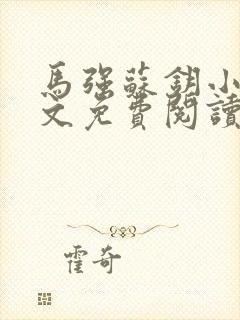 馬強蘇鈅小
文免費閱讀
霍奇